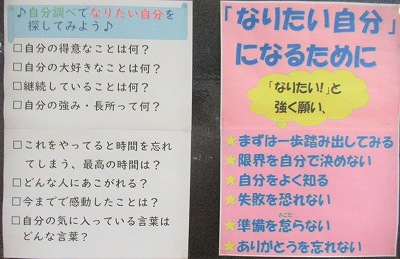 ♪自分調べでなりたい自分を
探してみよう♪
□自分の得意なことは何?
□自分の大好きなことは何?
□継続していることは何?
□自分の強み・長所って何?
□これをやってると時間を忘れ
てしまう、最高の時間は?
□どんな人にあこがれる?
□今までで感動したことは?
□自分の気に入っている言葉は
どんな言葉?
「なりたい自分」
になるために
「なりたい!」と
強く願い、
★まずは一歩踏み出してみる
★限界を自分で決めない
★自分をよく知る
★失敗を恐れない
おこた
★準備を怠らない
★ありがとうを忘れない